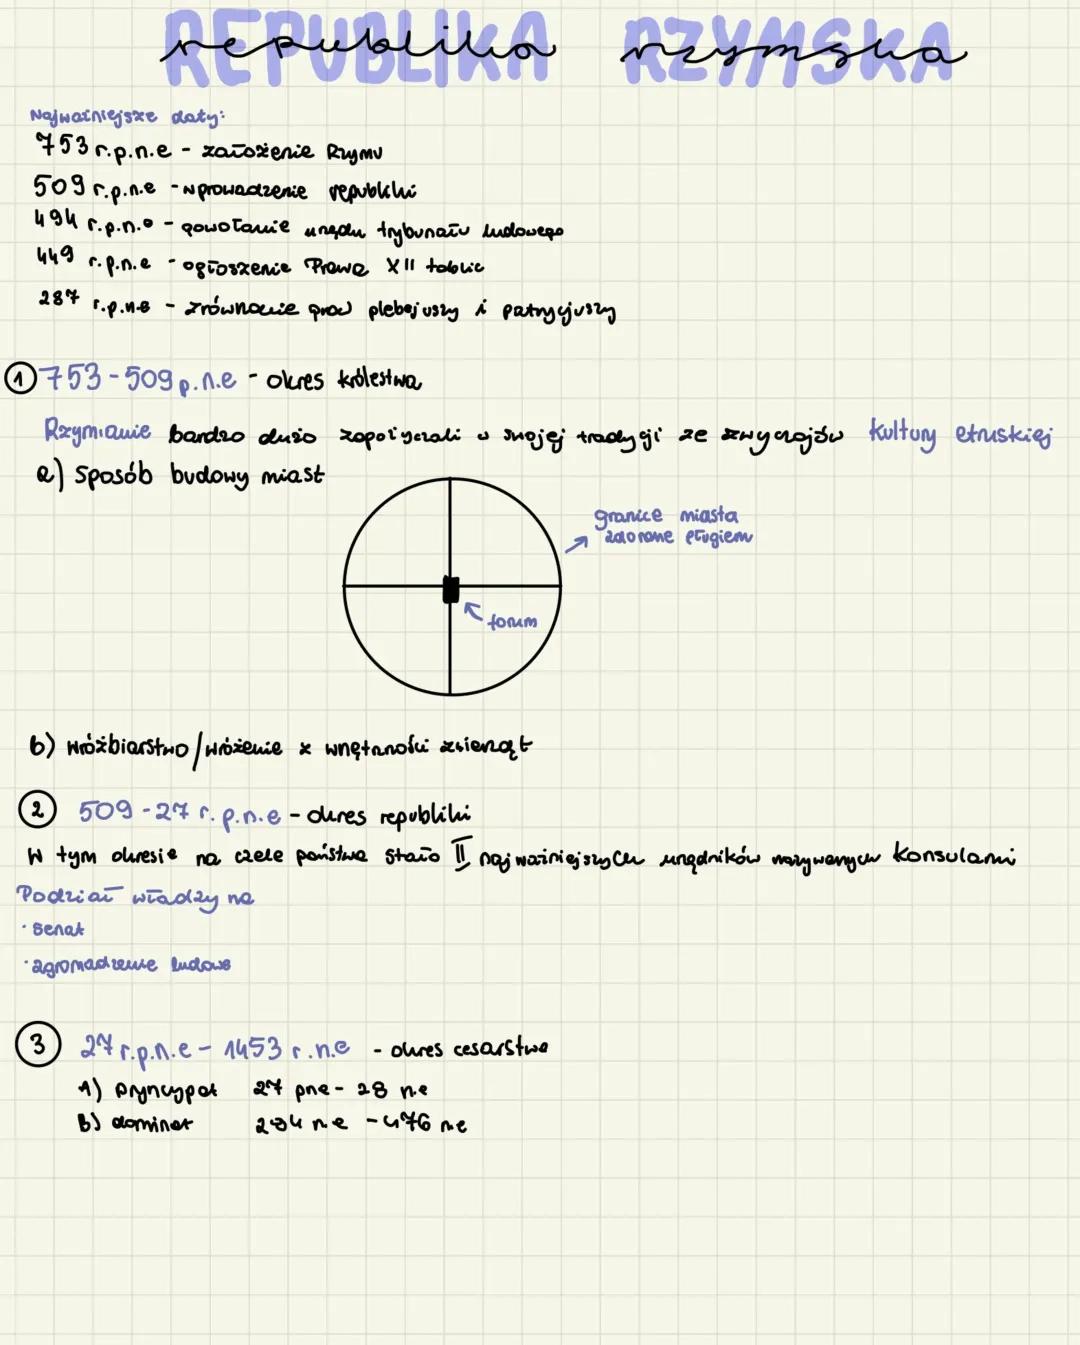 REPUBLIKA RZYMSKA
republika rzymska
Najważniejsze daty:
753 r.p.n.e - założenie Rzymu
509 r.p.n.e - wprowadzenie republiki
494 r.p.n.e - powołanie urzędu trybunatu ludowego
449 r.p.n.e - ogłoszenie Prawa XII tablic
287 r.p.n.e - zrównanie praw plebejuszy i patrycjuszy
1 753-509 p.n.e - okres królestwa
Rzymianie bardzo dużo zapożyczali w swojej tradycji ze zwyczajów kultury etruskiej
a) Sposób budowy miast
granice miasta
zaorane pługiem
forum
b) wróżbiarstwo/wróżenie z wnętrzności zwierząt
2 509-27 r.p.n.e - okres republiki
W tym okresie na czele państwa stało II najważniejszych urzędników nazywanych konsulami
Podział władzy na
· senat
· zgromadzenie ludowe
3 27 r.p.n.e - 1453 r.n.e - okres cesarstwa
A) pryncypat 27 pne - 28 n.e
B) dominat n.e - 476 ne